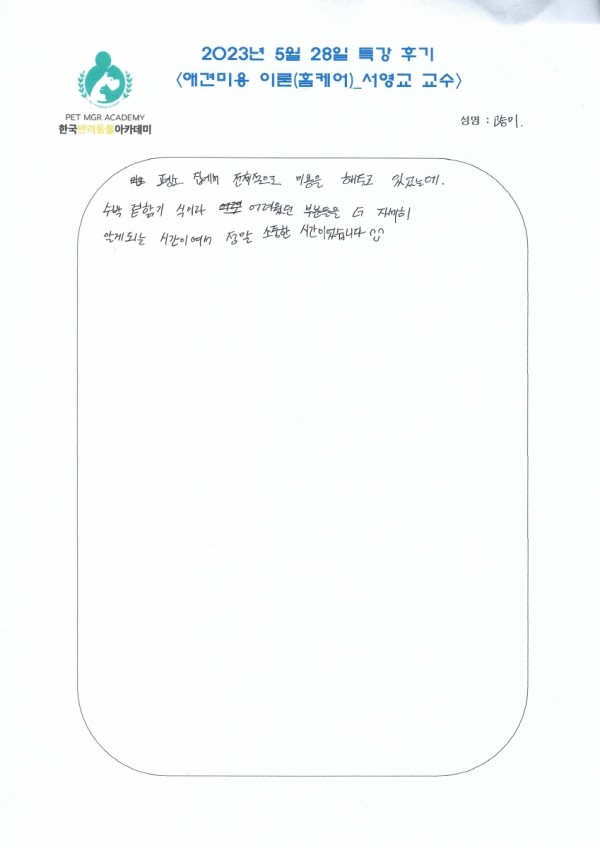 2023년 5월 28일 특강 후기
<애견미용 이론(홈케어)_서영교 교수>
PET MGR ACADEMY
한국반려동물아카데미
성명 :
평소 집에서 전체적으로 미용을 해주고 있었는데.
수박 겉핥기 식이라 어려웠던 부분들을 더 자세히
알게되는 시간이여서 정말 소중한 시간이었습니다